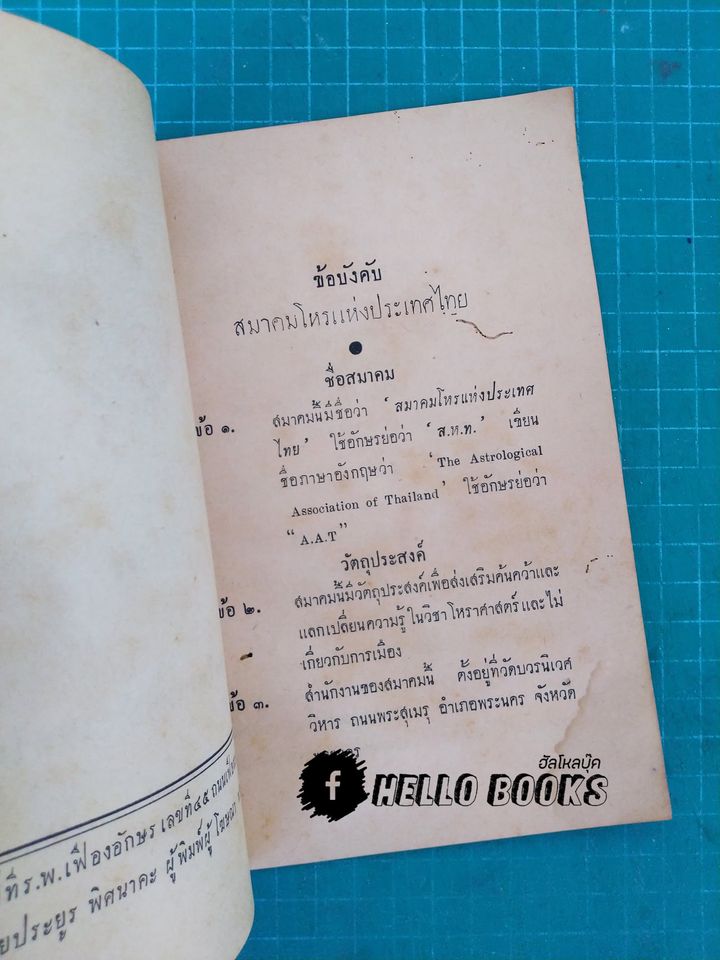 ข้อบังคับ
สมาคมโหรแห่งประเทศไทย
ชื่อสมาคม
ข้อ ๑. สมาคมนี้มีชื่อว่า ‘สมาคมโหรแห่งประเทศ
ไทย’ ใช้อักษรย่อว่า ‘ส.ห.ท.’ เขียน
ชื่อภาษาอังกฤษว่า ‘The Astrological
Association of Thailand’ ใช้อักษรย่อว่า
“A.A.T”
วัตถุประสงค์
ข้อ ๒. สมาคมนี้มีวัตถุประสงค์เพื่อส่งเสริมค้นคว้าและ
แลกเปลี่ยนความรู้ในวิชาโหราศาสตร์และไม่
เกี่ยวกับการเมือง
ข้อ ๓. สำนักงานของสมาคมนี้ ตั้งอยู่ที่วัดบวรนิเวศ
วิหาร ถนนพระสุเมรุ อำเภอพระนคร จังหวัด
ที่ ร.พ.เฟื่องอักษร เลขที่ ๔๕ ถนน
ยประยูร พิศนาคะ ผู้พิมพ์ผู้โฆษณา
f
ฮัลโหลบุ๊ค
HELLO BOOKS